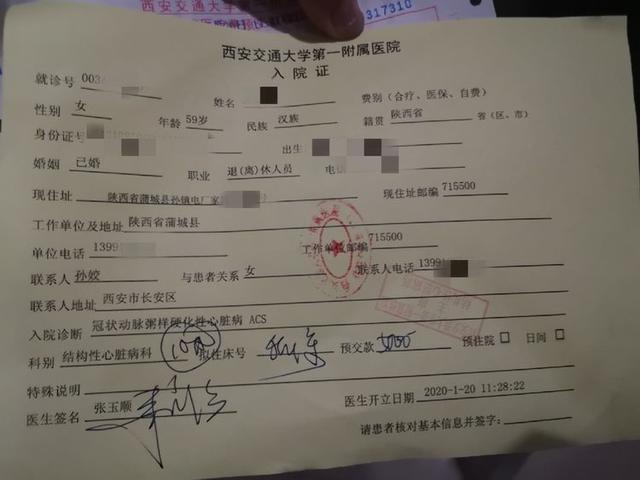 317310
西安交通大学第一附属医院
入院证
就诊号 003 姓名 费别(合疗、医保、自费)
性别 女 年龄 59岁 民族 汉族 籍贯 陕西省 省(区、市)
身份证号 出生
婚姻 已婚 职业 退(离)休人员 电话
现住址 陕西省蒲城县孙镇电厂家 现住址邮编 715500
工作单位及地址 陕西省蒲城县
单位电话 1399 工作单位邮编 715500
联系人 孙姣 与患者关系 女 联系人电话 1399
联系人地址 西安市长安区
入院诊断 冠状动脉粥样硬化性心脏病 ACS
科别 结构性心脏病科 拟住床号 预交款 预住院 □ 日间 □
特殊说明
医生签名 张玉顺 医生开立日期 2020-1-20 11:28:22
请患者核对基本信息并签字: